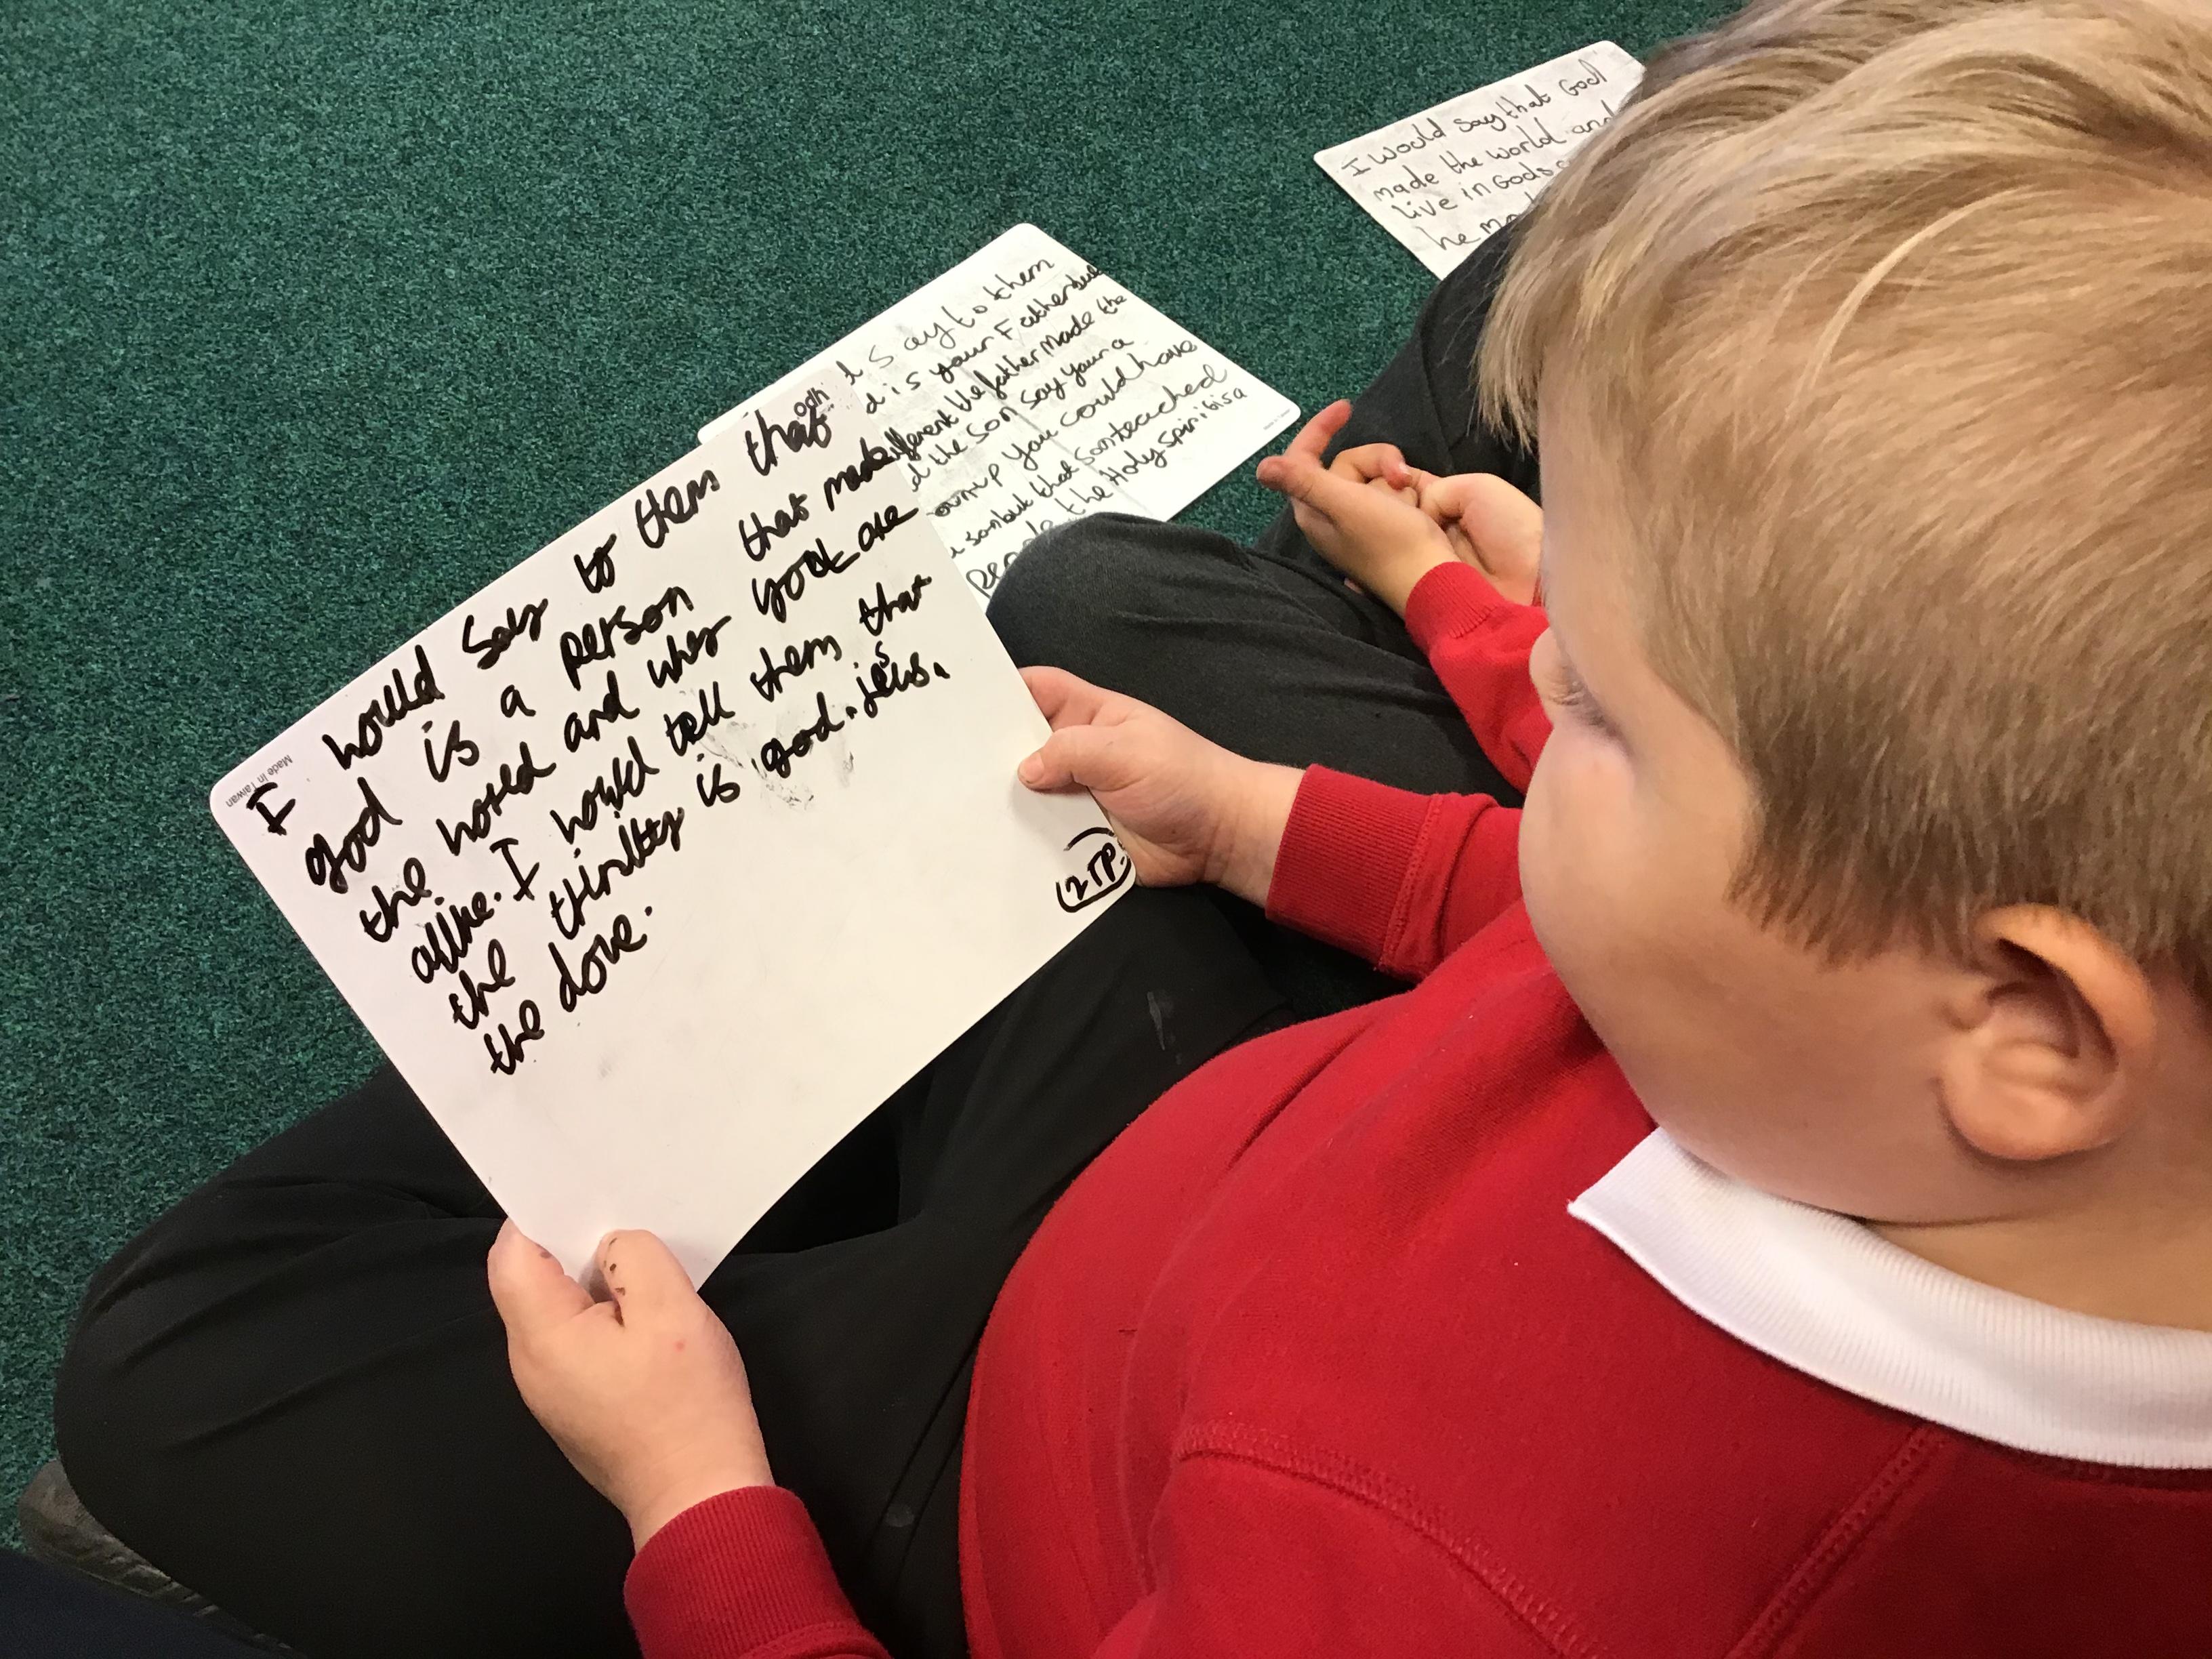 I would say to them that
god is a person that made
the world and why you are
alike. I would tell them that
the thinkty is god. jesus.
the dove.
12TP
Made in Taiwan
say to them
d is your Father but
different the father made the
d the son say your a
grown up you could have
a son but that son teached
people the Holy Spirit is a
I would say that God
made the world and
live in Gods
he ma